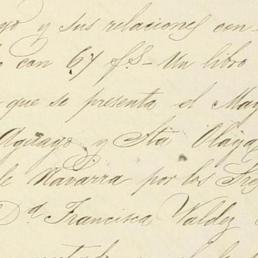 y sus relaciones con
con 67 fs - Un libro
que se presenta el May
Agitayo y Sta Olaya
de Navarra por los
Dª Francisca Valdez